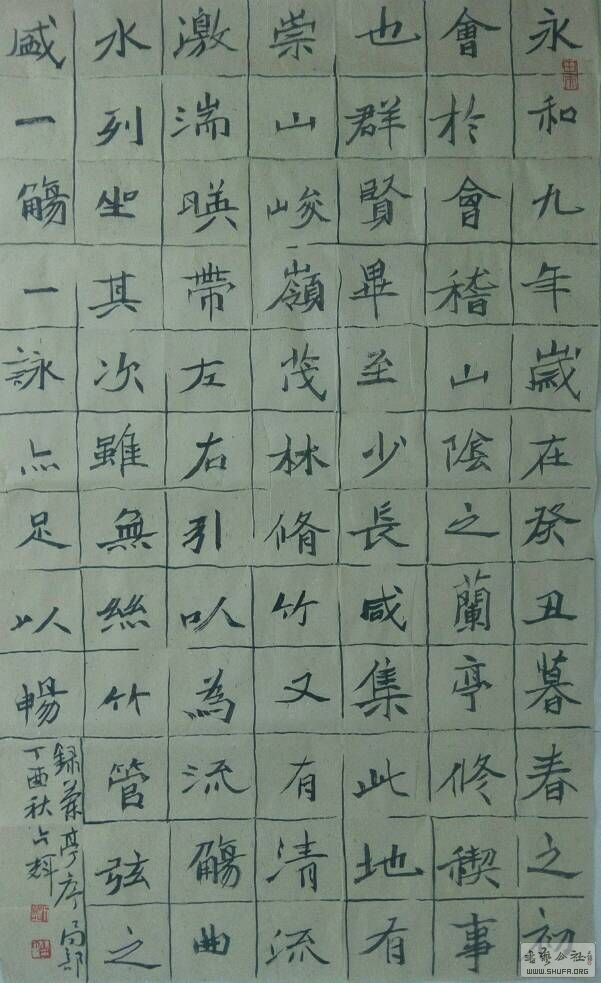 永和九年歲在癸丑暮春之初
會於會稽山陰之蘭亭修稧事
也群賢畢至少長咸集此地有
崇山峻嶺茂林脩竹又有清流
激湍暎帶左右引以為流觴曲
水列坐其次雖無絲竹管弦之
盛一觴一詠亦足以暢
録蘭亭序局部
丁酉秋
WWW.SHUFA.ORG